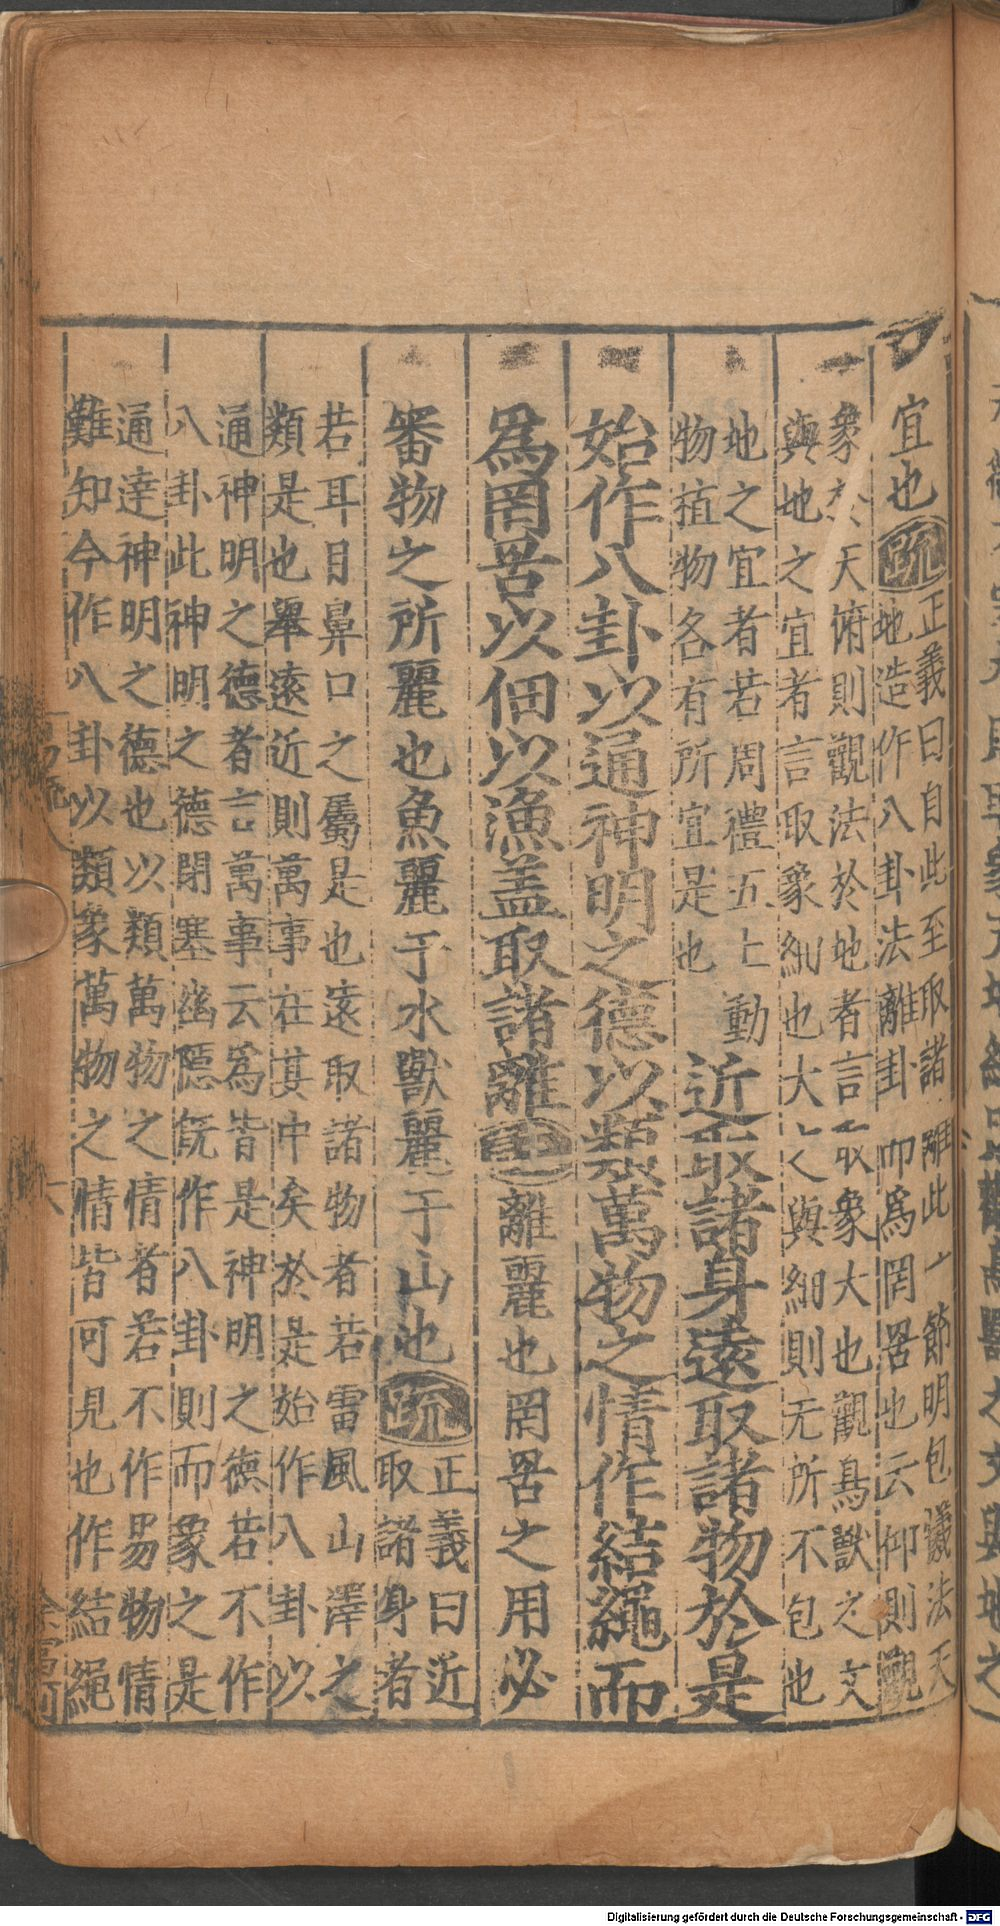 宜也疏正義曰自此至取諸離此一節明包犧法天
地造作八卦法離卦而爲罔罟也云仰則觀
象於天俯則觀法於地者言取象大也觀鳥獸之文
與地之宜者言取象細也大之與細則无所不包也
地之宜者若周禮五土動
物植物各有所宜是也
近取諸身遠取諸物於是
始作八卦以通神明之德以類萬物之情作結繩而
爲罔罟以佃以漁盖取諸離離麗也罔罟之用必
審物之所麗也魚麗于水獸麗于山也疏正義曰近
取諸身者
若耳目鼻口之屬是也遠取諸物者若雷風山澤之
類是也舉遠近則萬事在其中矣於是始作八卦以
通神明之德者言萬事云爲皆是神明之德若不作
八卦此神明之德閉塞幽隱旣作八卦則而象之是
通達神明之德也以類萬物之情者若不作易物情
難知今作八卦以類象萬物之情皆可見也作結繩
六
Digitalisierung gefördert durch die Deutsche Forschungsgemeinschaft - DFG